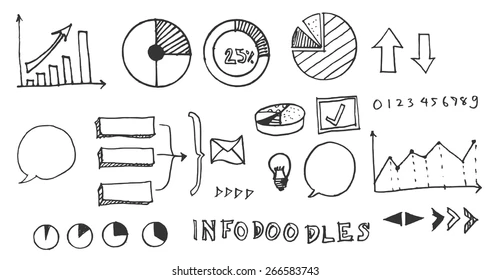 25%
0 1 2 3 4 5 6 7 8 9
INFODOODLES
shutterstock.com · 266583743